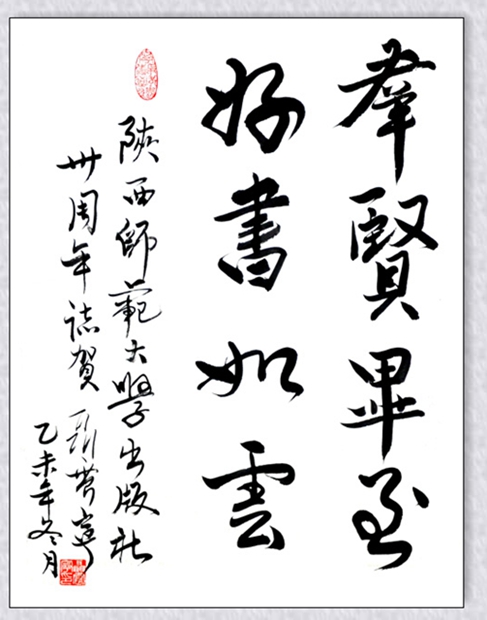 羣賢畢至
好書如雲
陝西師範大學出版社
卅周年誌賀
乙未年冬月